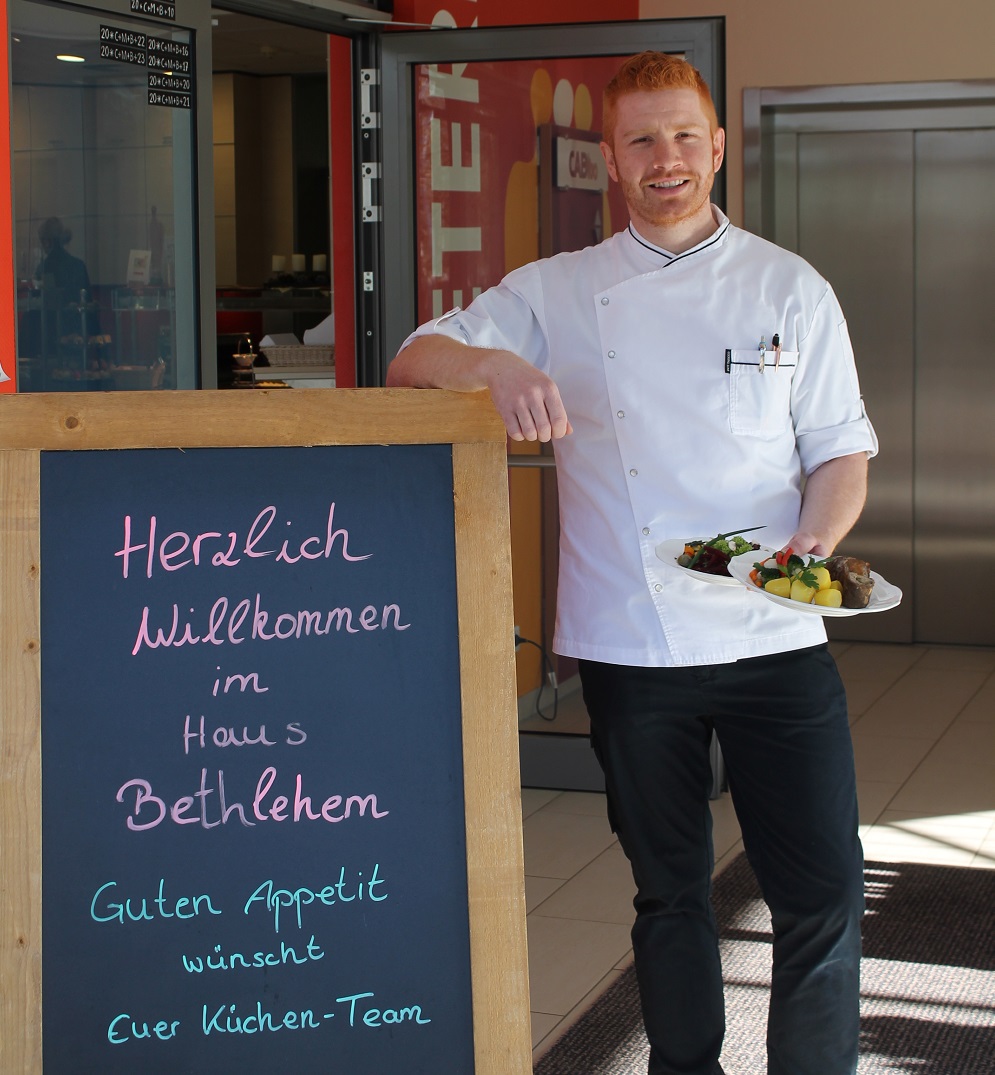 20*C+M+B+10
20*C+M+B+22
20*C+M+B+16
20*C+M+B+23
20*C+M+B+17
20*C+M+B+20
20*C+M+B+21
Herzlich
Willkommen
im
Haus
Bethlehem
Guten Appetit
wünscht
Euer Küchen-Team